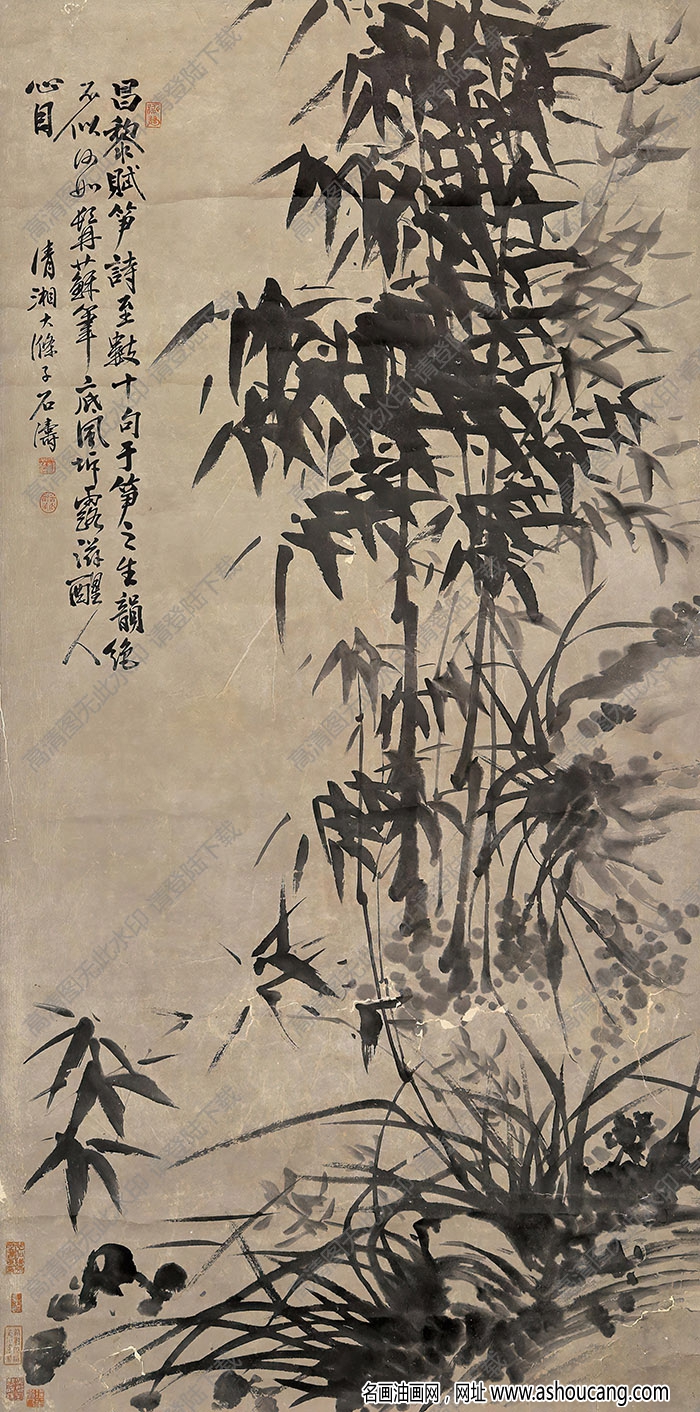 昌黎賦笋詩至數十句于笋之生韻絕
不似何如髯蘇筆底風坼露滋醒人
心目
清湘大滌子石濤
高清图无此水印 请登陆下载
名画油画网，网址 www.ashoucang.com